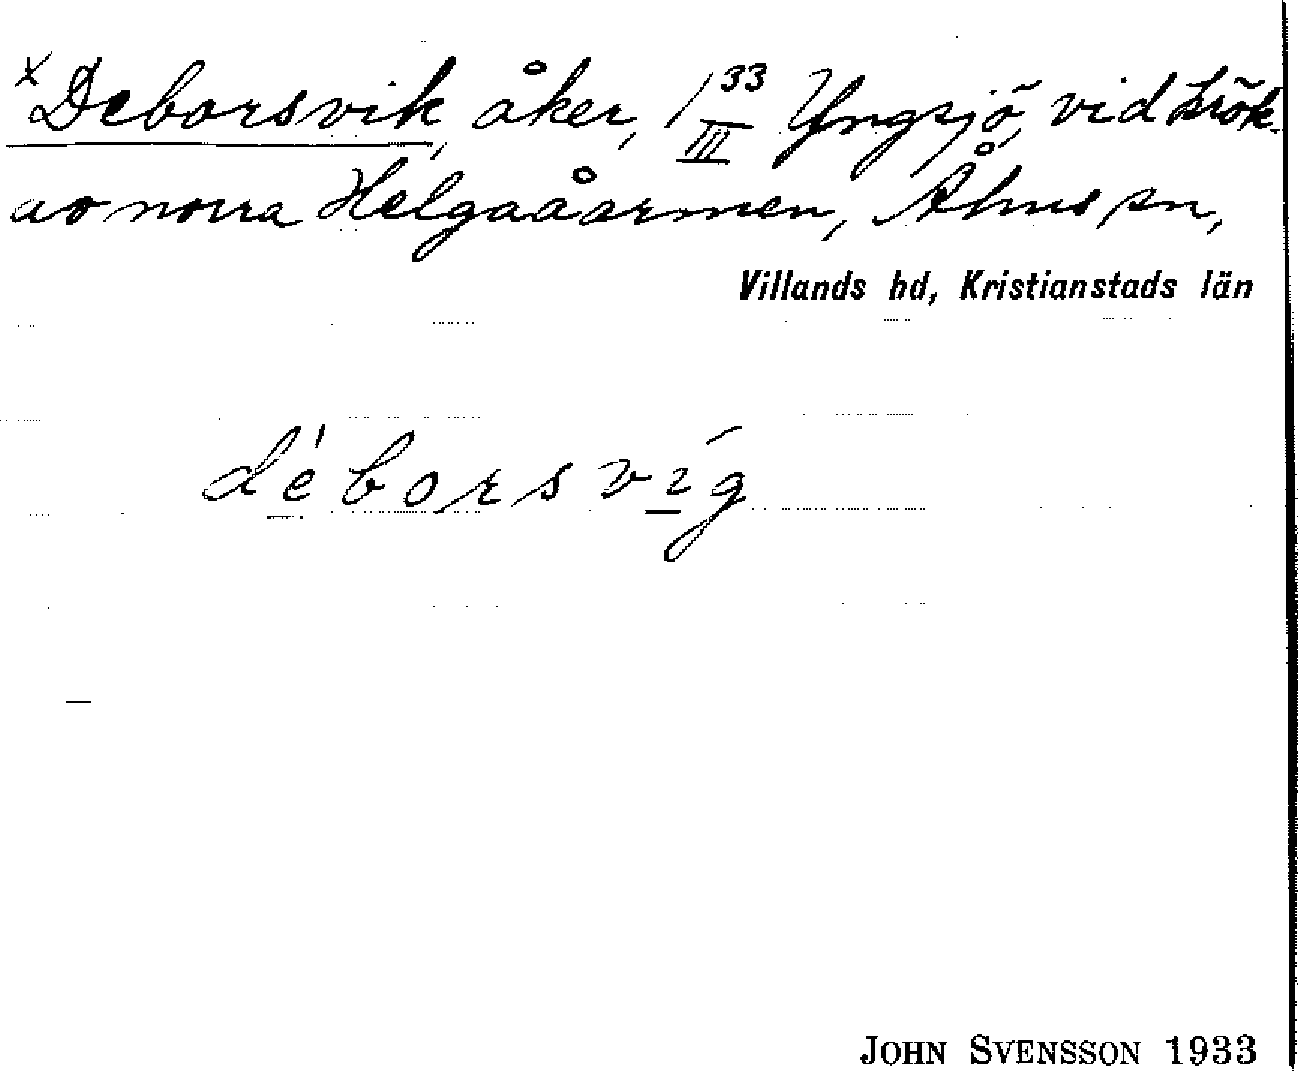 x Deborsvik, åker, 1 33/III Yngsjö, vid krök
av norra Helgaåarmen, Åhus sn,
Villands hd, Kristianstads län
déborsvíg
JOHN SVENSSON 1933